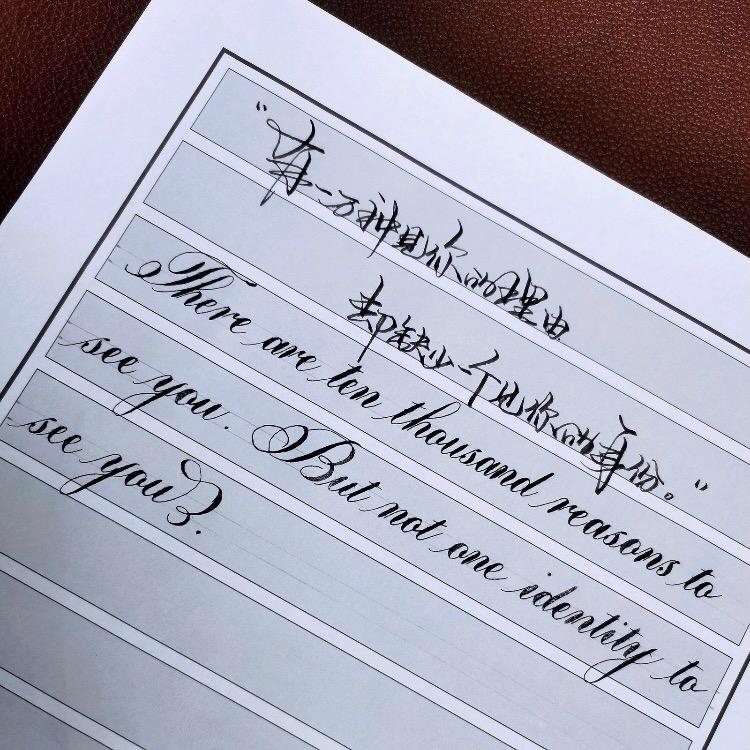 “有一万种见你的理由
却缺少一个见你的身份。”
There are ten thousand reasons to
see you. But not one identity to
see you.